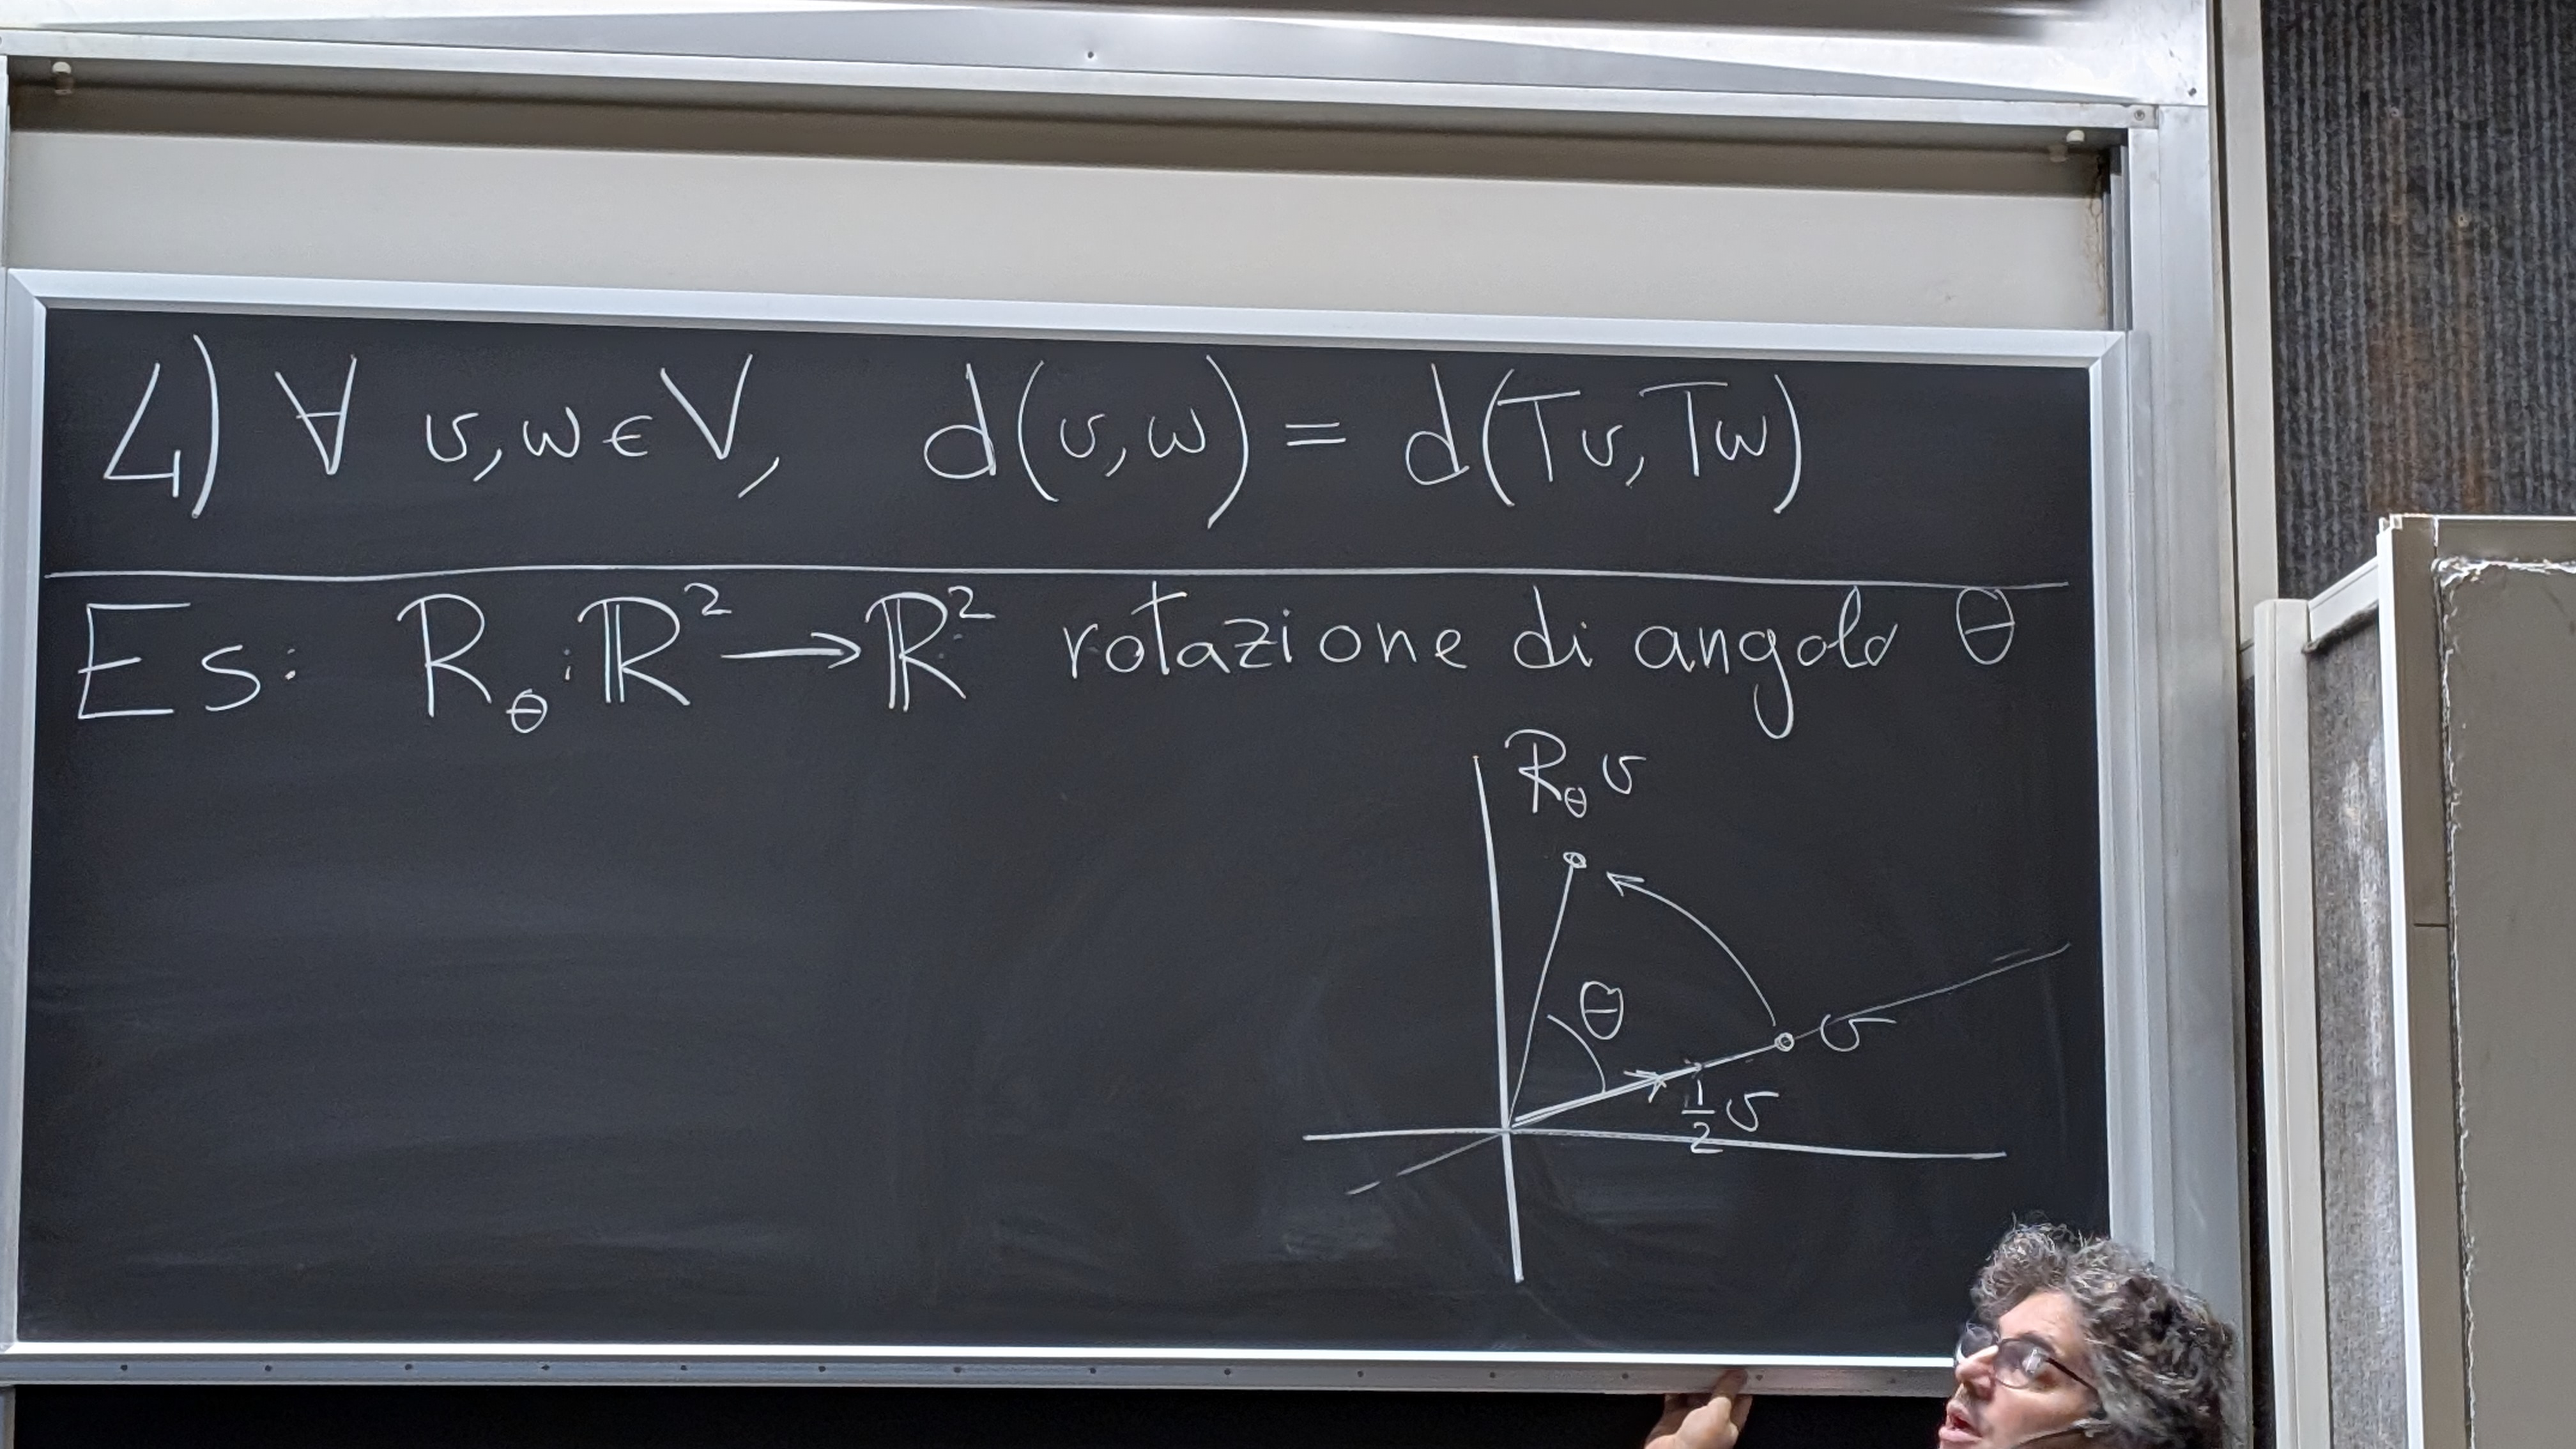 4) ∀ v, w ∈ V, d(v, w) = d(Tv, Tw)
Es: R_θ : ℝ² → ℝ² rotazione di angolo θ
R_θ v
θ
v
1/2 v